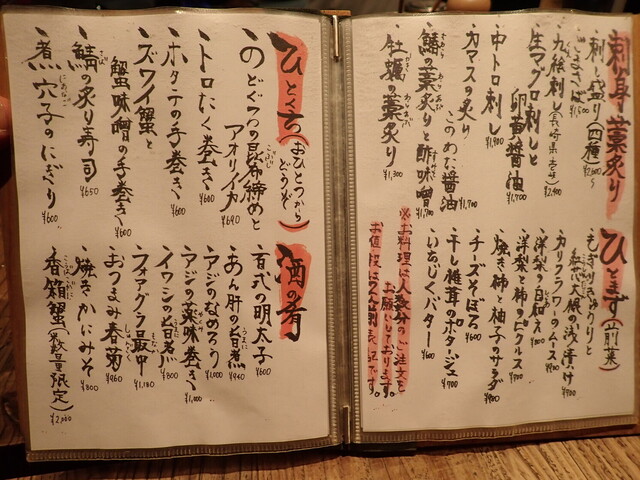 刺身・藁炙り
刺し盛り(四種) ¥2,600〜
ごまさば ¥1,500
九絵刺し(長崎県壱岐) ¥2,400
生マグロ刺しと
卵黄醤油 ¥1,700
中トロ刺し ¥1,900
カマスの炙り
このわた醤油 ¥1,700
鰆の藁炙りと酢味噌 ¥1,700
牡蠣の藁炙り ¥1,300
ひとまず(前菜)
もぎりきゅうりと
紅芯大根の浅漬け ¥700
カリフラワーのムース ¥900
洋梨の白和え ¥800
洋梨と柿のピクルス ¥700
焼き柿と柚子のサラダ ¥900
チーズそぼろ ¥600
干し椎茸のポタージュ ¥700
いちじくバター ¥600
※お料理は人数分のご注文を
お願いしております。
お値段は
ひとくち(おひとつから
どうぞ)
のどぐろの昆布締めと
アオリイカ ¥690
トロたく巻き ¥600
ホタテの手巻き ¥600
ズワイ蟹と
蟹味噌の手巻き ¥600
鯖の炙り寿司 ¥650
煮穴子のにぎり ¥600
酒の肴
百弐の明太子 ¥600
あん肝の旨煮 ¥940
アジのなめろう ¥1,000
アジの薬味巻き ¥1,000
イワシの旨煮 ¥800
フォアグラ最中 ¥1,180
おつまみ春菊 ¥960
焼きかにみそ ¥800
香箱蟹(数量限定) ¥2,000